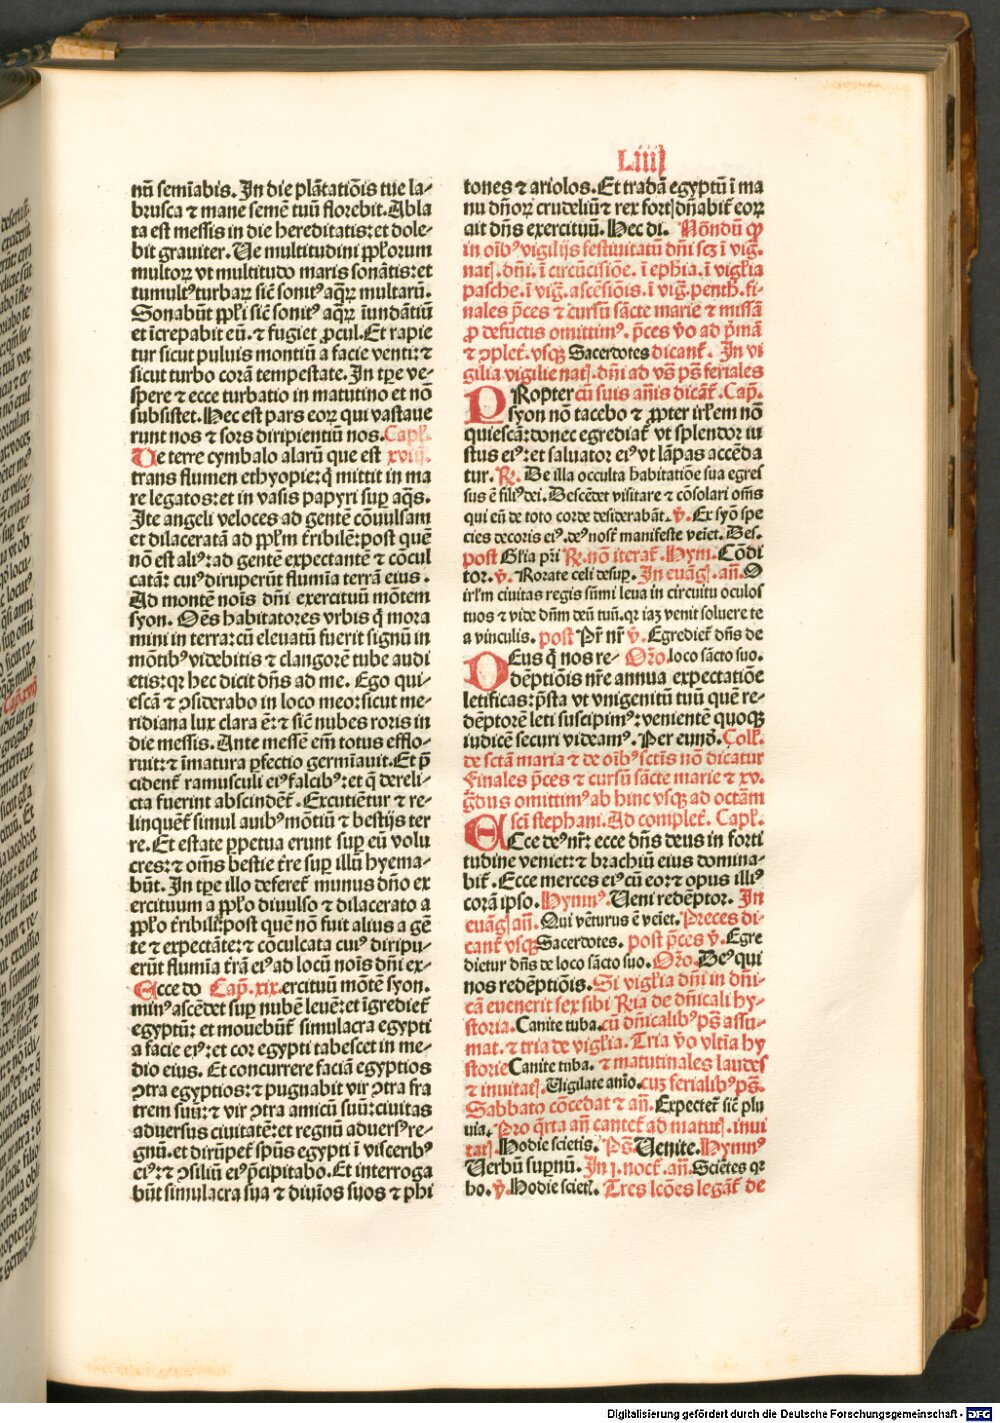 Liiij
nū semīabis. In die plātatiōis tue la-
brusca ⁊ mane semē tuū florebit. Abla
ta est messis in die hereditatis: et dole-
bit grauiter. Ue multitudini pploꝝum
multoꝝ vt multitudo maris sonātis: et
tumultꝰ turbaꝝ sic̄ sonitꝰ aqꝝ multarū.
Sonabūt ppl'i sic̄ sonitꝰ aqꝝ īundātiū
et īcrepabit eū. ⁊ fugiet ꝓcul. Et rapie
tur sicut puluis montiū a facie venti: ⁊
sicut turbo corā tempestate. In tpe ve-
spere ⁊ ecce turbatio in matutino et nō
subsistet. Hec est pars eoꝝ qui vastaue
runt nos ⁊ sors diripientiū nos. Capl'.
Ue terre cymbalo alarū que est xviij.
trans flumen ethyopie: q̄ mittit in ma
re legatos: et in vasis papyri suꝑ aq̄s.
Ite angeli veloces ad gentē cōuulsam
et dilaceratā ad ppl'm t'ribilē: post quē
nō est aliꝰ: ad gentē expectantē ⁊ cōcul
catā: cuiꝰ diruperūt flumīa terrā eius.
Ad montē noīs dn̄i exercituū mōtem
syon. Oēs habitatores vrbis q̄ mora
mini in terra: cū eleuatū fuerit signū in
mōtibꝰ videbitis ⁊ clangorē tube audi
etis: qꝛ hec dicit dn̄s ad me. Ego qui-
escā ⁊ ꝯsiderabo in loco meo: sicut me-
ridiana lux clara ē: ⁊ sic̄ nubes roris in
die messis. Ante messē em̄ totus efflo-
ruit: ⁊ īmatura ꝑfectio germīauit. Et p̄
cident' ramusculi eiꝰ falcibꝰ: et q̄ dereli-
cta fuerint abscindēt'. Excutiētur ⁊ re-
linquēt' simul auibꝰ mōtiū ⁊ bestijs ter
re. Et estate ꝑpetua erunt suꝑ eū volu
cres: ⁊ om̄s bestie t're suꝑ illū hyema-
būt. In tpe illo deferet' munus dn̄o ex
ercituum a ppl'o diuulso ⁊ dilacerato a
ppl'o t'ribili: post que nō fuit alius a gē
te ⁊ expectāte: ⁊ cōculcata cuiꝰ diripu-
erūt flumīa t'rā eiꝰ ad locū noīs dn̄i ex-
Ecce do Cap. xix. ercituū mōtē syon.
minꝰ ascēdet suꝑ nubē leuē: et īgrediet'
egyptū: et mouebūt' simulacra egypti
a facie eiꝰ: et cor egypti tabescet in me-
dio eius. Et concurrere faciā egyptios
ꝯtra egyptios: ⁊ pugnabit vir ꝯtra fra
trem suū: ⁊ vir ꝯtra amicū suū: ciuitas
aduersus ciuitatē: et regnū aduersꝰ re-
gnū. et dirūpet' sp̄us egypti ī visceribꝰ
eiꝰ: ⁊ ꝯsiliū eiꝰ p̄cipitabo. Et interroga
būt simulacra sua ⁊ diuīos suos ⁊ phi
tones ⁊ ariolos. Et tradā egyptū ī ma
nu dn̄oꝝ crudeliū: ⁊ rex fort' dn̄abit' eoꝝ
ait dn̄s exercituū. Hec di. Nōndū ꝙ
in oībꝰ vigilijs festiuitatū dn̄i scꝫ ī vig'.
nat'. dn̄i. ī circūcisiōe. ī eph'ia. ī vigl'ia
pasche. ī vig'. ascēsiōis. ī vig'. penth'. fi-
nales p̄ces ⁊ cursū sācte marie ⁊ missā
ꝓ defūctis omittimꝰ. p̄ces v̄o ad p̄mā
⁊ ꝯplet'. vsqꝫ Sacerdotes dicant'. In vi
gilia vigilie nat'. dn̄i ad vs̄ ps̄ feriales
PRopter cū suis an̄is dicāt'. Cap.
syon nō tacebo ⁊ ꝓpter irl'em nō
quiescā: donec egrediat' vt splendor iu
stus eiꝰ: et saluator eiꝰ vt lāpas accēda
tur. R. De illa occulta habitatiōe sua egres
sus ē filiꝰ dei. Descēdet visitare ⁊ cōsolari om̄s
qui eū de toto corde desiderabāt. v. Ex syō spe
cies decoris eiꝰ. deꝰ nost' manifeste veīet. Des.
post Gl'ia p̄ri R. nō iterat'. Hym. Cōdi
tor. v. Rorate celi desuꝑ. In euāg'. an̄. O
irl'm ciuitas regis sūmi leua in circuitu oculos
tuos ⁊ vide dn̄m deū tuū. qꝛ iaꝫ venit soluere te
a vinculis. post Pr̄ nr̄ v. Egrediet' dn̄s de
DEus q̄ nos re- Oro. loco sācto suo.
dēptiōis nr̄e annua expectatiōe
letificas: p̄sta vt vnigenitū tuū quē re-
dēptorē leti suscipimꝰ: venientē quoqꝫ
iudicē securi videamꝰ. Per eund̄. Coll'.
de sctā maria ⁊ de oībꝰ sctīs nō dicatur
Finales p̄ces ⁊ cursū sācte marie ⁊ xv.
ḡdus omittimꝰ ab hinc vsqꝫ ad octām
scī stephani. Ad complet'. Capl'.
ECce deꝰ nr̄: ecce dn̄s deus in forti
tudine veniet: ⁊ brachiū eius domina-
bit'. Ecce merces eiꝰ cū eo: ⁊ opus illiꝰ
corā ipso. Hymnꝰ. Ueni redēptor. In
euāg' an̄. Qui vēturus ē veīet. Preces di-
cant' vsqꝫ Sacerdotes. post p̄ces v. Egre
dietur dn̄s de loco sācto suo. Oro. Deꝰ qui
nos redēptiōis. Si vigl'ia dn̄i in dn̄i-
cā euenerit sex sibi R̄ia de dn̄icali hy-
storia. Canite tuba. cū dn̄icalibꝰ ps̄ assu-
mat. ⁊ tria de vigl'ia. Tria v̄o vltīa hy
storie Canite tuba. ⁊ matutinales laudes
⁊ inuitat'. Uigilate aīo. cuꝫ ferialibꝰ ps̄.
Sabbato cōcedat ⁊ an̄. Expectet' sic̄ plu
uia. Pro q̄rta an̄ cantet' ad matut'. inui
tat'. Hodie scietis. Ps̄. Uenite. Hymnꝰ
Uerbū suꝑnū. In j. noct'. an̄. Scietes qꝛ
ho. v. Hodie sciet'. Tres lcōes legāt' de
Digitalisierung gefördert durch die Deutsche Forschungsgemeinschaft - DFG